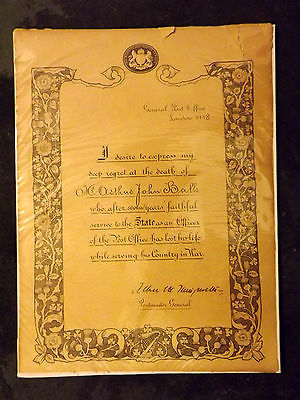 General Post Office
London 1918
I desire to express my
deep regret at the death of
Arthur John Balls
who, after years' faithful
service to the State as an Officer
of the Post Office, has lost his life
while serving his Country in War.
Postmaster General